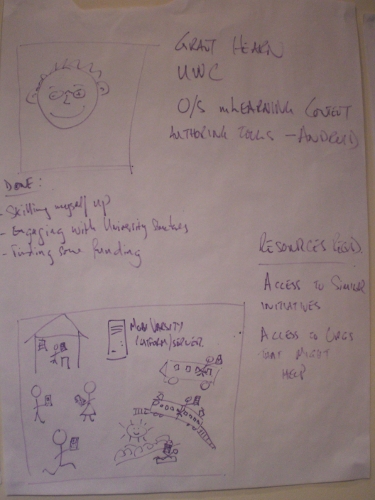 GRANT HEARN
UWC
O/S MLEARNING CONTENT
AUTHORING TOOLS - ANDROID
DONE:
- Skilling myself up
- Engaging with University
- Finding some funding
RESOURCES REQD.
ACCESS TO SIMILAR
INITIATIVES
ACCESS TO ORGS
THAT MIGHT
HELP
PLATFORM/SERVER